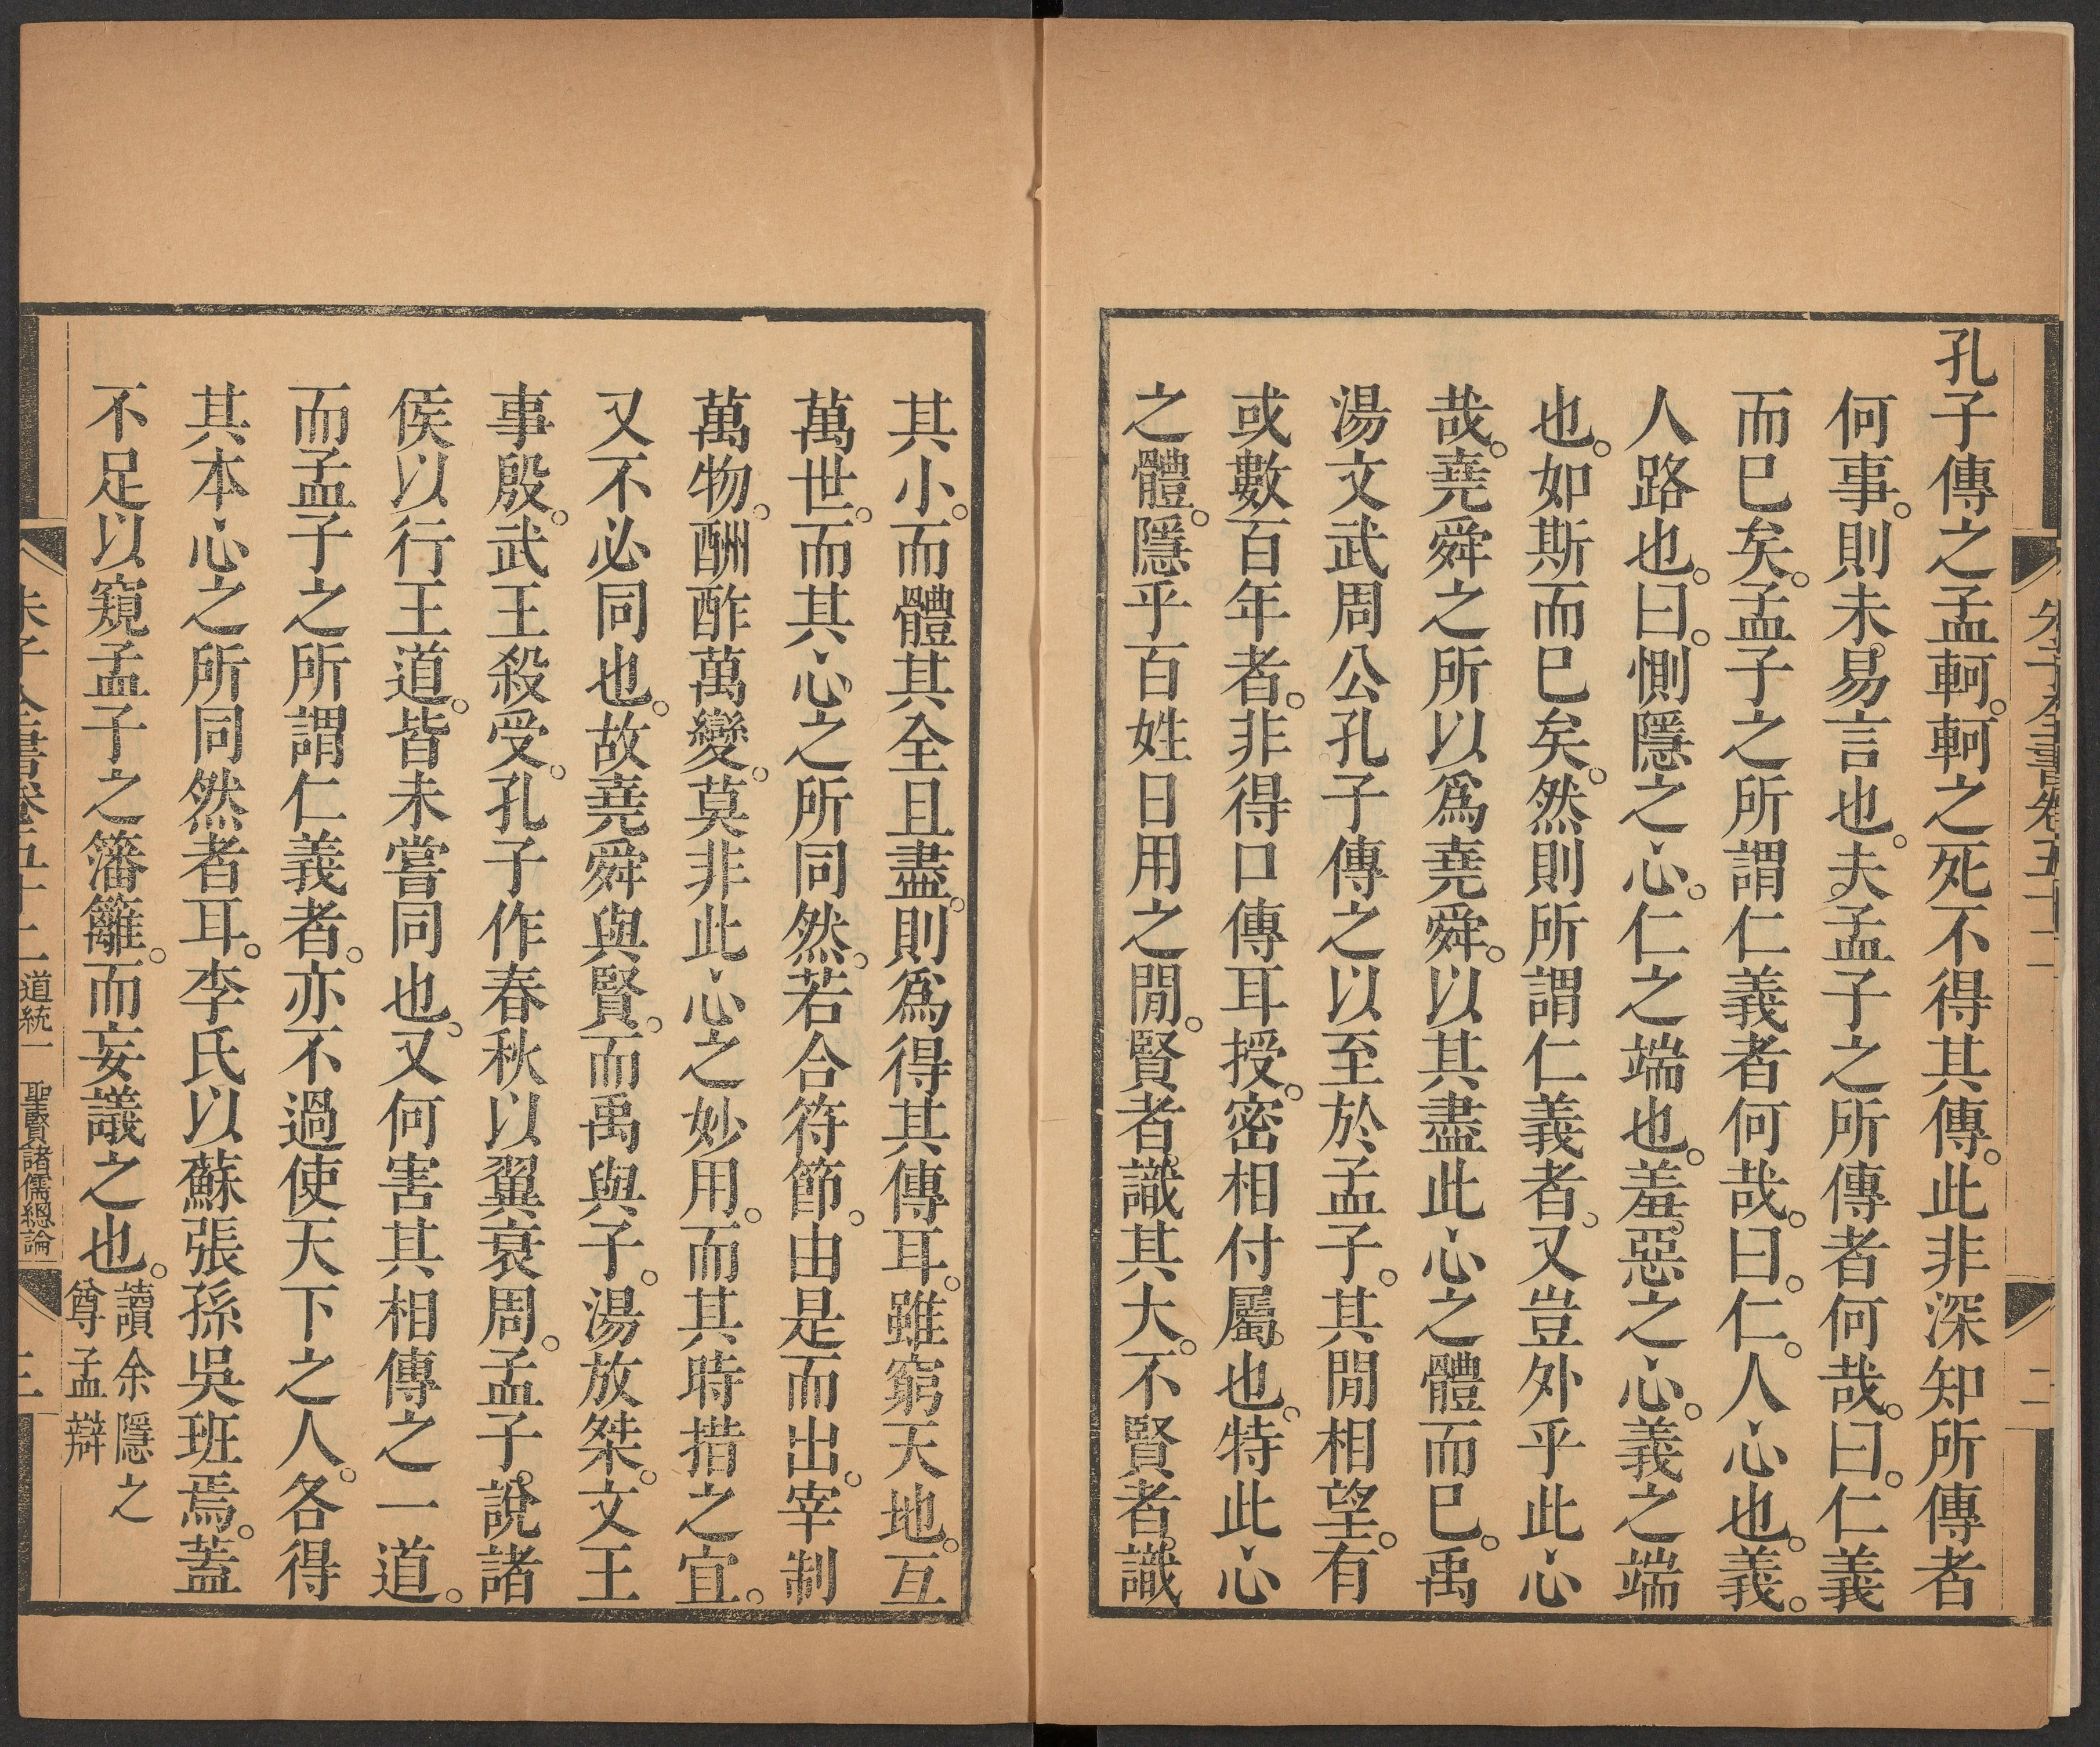 朱子全書卷五十二
二
孔子傳之孟軻。軻之死不得其傳。此非深知所傳者
何事。則未易言也。夫孟子之所傳者何哉。曰。仁義
而巳矣。孟子之所謂仁義者何哉。曰。仁。人心也。義。
人路也。曰。惻隱之心。仁之端也。羞惡之心。義之端
也。如斯而巳矣。然則所謂仁義者。又豈外乎此心
哉。堯舜之所以爲堯舜。以其盡此心之體而巳。禹
湯文武周公孔子傳之以至於孟子。其閒相望。有
或數百年者。非得口傳耳授。密相付屬也。特此心
之體。隱乎百姓日用之閒。賢者識其大。不賢者識
其小。而體其全且盡。則爲得其傳耳。雖窮天地。亙
萬世。而其心之所同然。若合符節。由是而出。宰制
萬物。酬酢萬變。莫非此心之妙用。而其時措之宜。
又不必同也。故堯舜與賢。而禹與子。湯放桀。文王
事殷。武王殺受。孔子作春秋以翼衰周。孟子說諸
侯以行王道。皆未嘗同也。又何害其相傳之一道。
而孟子之所謂仁義者。亦不過使天下之人。各得
其本心之所同然者耳。李氏以蘇張孫吳班焉。蓋
不足以窺孟子之籓籬。而妄議之也。讀余隱之尊孟辯
朱子全書卷五十二 道統一 聖賢諸儒總論
三